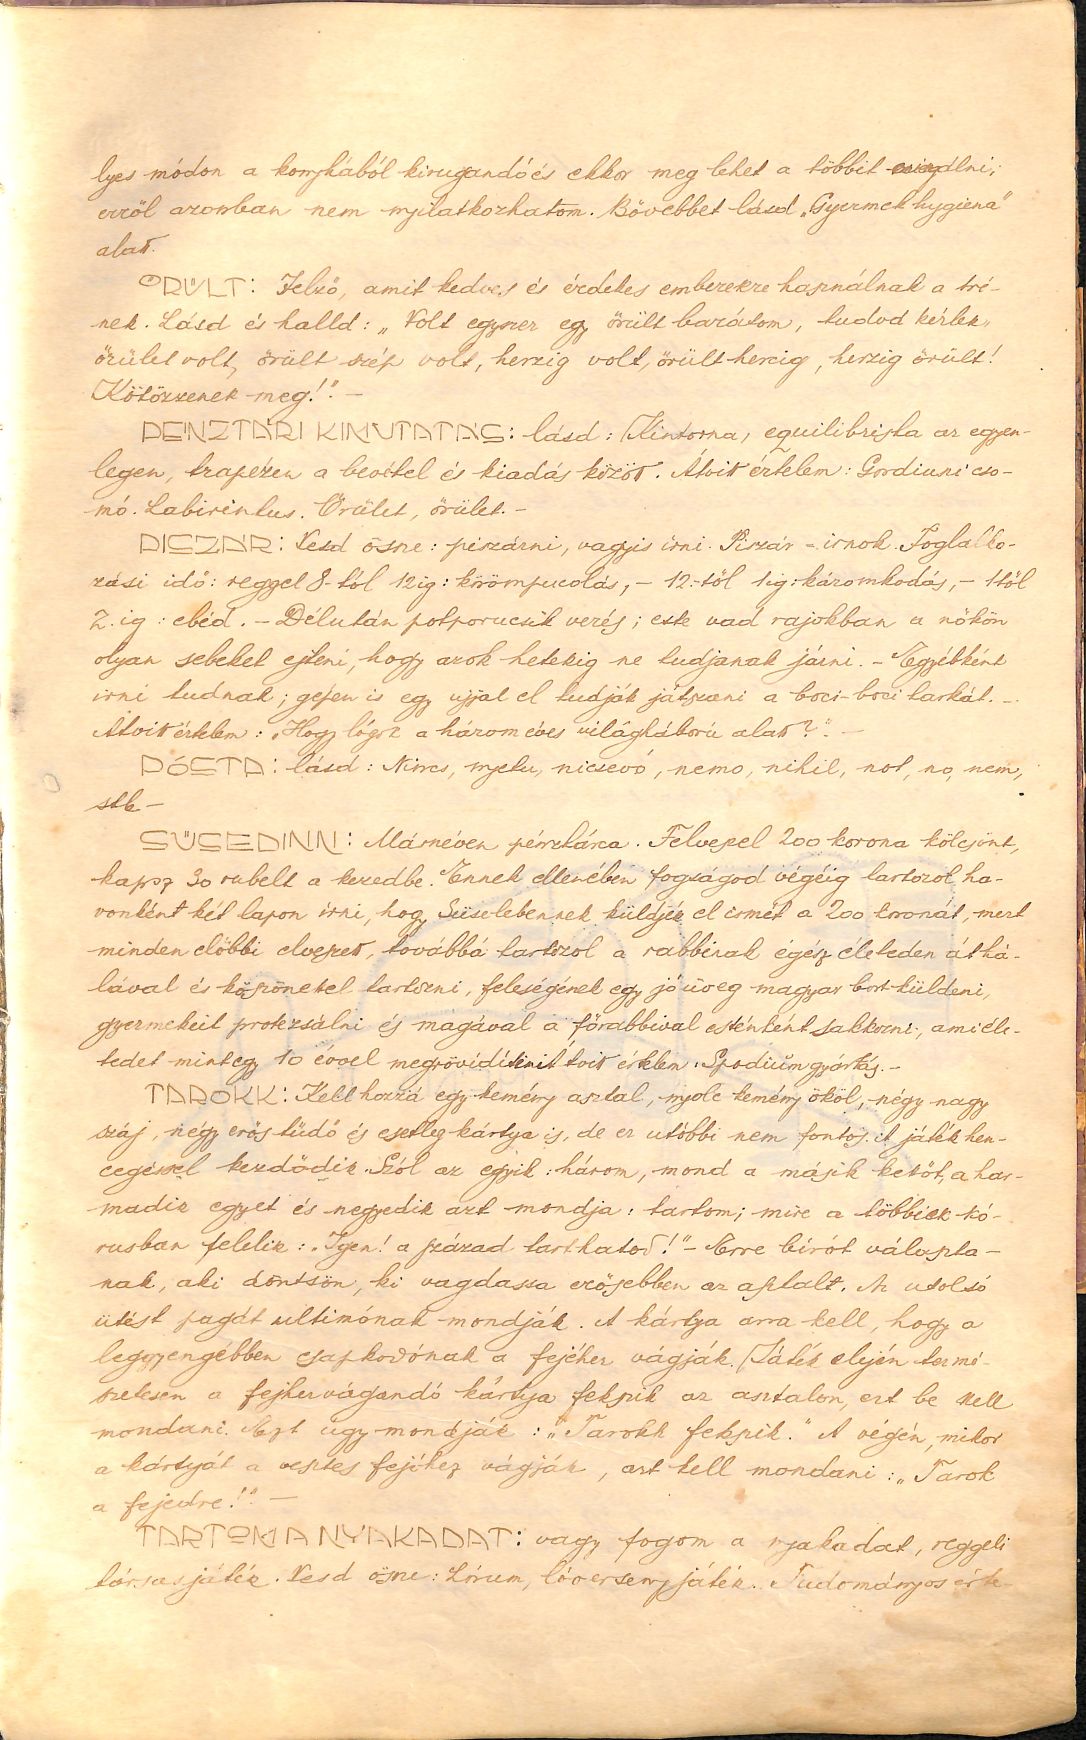 lyes módon a konyhából kirugandó és ekkor meg lehet a többit
erről azonban nem nyilatkozhatom. Bövebbet lásd „Gyermek hygiena"
alatt.
ŐRÜLT: Jelző, amit kedves és érdekes emberekre használnak a tré-
nek. Lásd és halld: „Volt egyszer egy őrült barátom, tudod kérlek„
őrület volt, őrült szép volt, herzig volt, őrült hercig, herzig őrült!
Kötözzenek meg!". —
PÉNZTÁRI KIMUTATÁS: lásd: Kintorna, equilibrista az egyen-
legen, trapézen a bevétel és kiadás között. Átvitt értelem: Gordiusi cso-
mó. Labirintus. Őrület, őrület. -
PISZÁR: Vesd össze: piszárni, vagyis irni. Piszár = irnok. Foglalko-
zási idő: reggel 8-tól 12ig: körömpucolás, — 12.-től 1ig: káromkodás, — 1től
2. ig: ebéd. — Délután potporucsik verés; este vad rajokban a nőkön
olyan sebeket ejteni, hogy azok hetekig ne tudjanak járni. — Egyébként
irni tudnak; gépen is egy ujjal el tudják játszani a boci-boci tarkát. —
Átvitt értelem: „Hogy lógok a három éves világháború alatt?". —
PÓSTA: lásd: Nincs, nyetu, nicsevó, nemo, nihil, not, no, nem,
stb —
SÜSEDINN: Másnéven pénztárca. Felveszel 200 korona kölcsönt,
kapsz 30 rubelt a kezedbe. Ennek ellenében fogságod végéig tartozol ha-
vonként két lapon irni, hogy Süselebennek küldjék el ismét a 200 koronát, mert
minden előbbi elveszett, továbbá tartozol a rabbinak egész életeden át há-
lával és köszönettel tartozni, feleségének egy jó üveg magyar bort küldeni,
gyermekeit protezsálni és magával a főrabbival esténként sakkozni, ami éle-
tedet mintegy 10 évvel megrövidíti. Átvitt értelem: Spodium gyártás. —
TAROKK: Kell hozzá egy kemény asztal, nyolc kemény ököl, négy nagy
száj, négy erős tüdő és esetleg kártya is, de ez utóbbi nem fontos. A játék hen-
cegéssel kezdődik. Szól az egyik: három, mond a másik kettőt, a har-
madik egyet és negyedik azt mondja: tartom; mire a többiek kó-
rusban felelik: „Igen! a szádat tarthatod!" — Erre bírót választa-
nak, aki döntsön, ki vagdossa erősebben az asztalt. Az utolsó
ütést pagát ultimónak mondják. A kártya arra kell, hogy a
leggyengébben csapkodónak a fejéhez vágják. Játék elején termé-
szetesen a fejhezvágandó kártya fekszik az asztalon, ezt be kell
mondani. Ezt úgy mondják: „Tarokk fekszik." A végén, mikor
a kártyát a vesztes fejéhez vágják, azt kell mondani: „Tarok
a fejedre!". —
TARTOM A NYAKADAT: vagy fogom a nyakadat, reggeli
társasjáték. Vesd össze: Lórum, lóverseny játék. Tudományos érte-